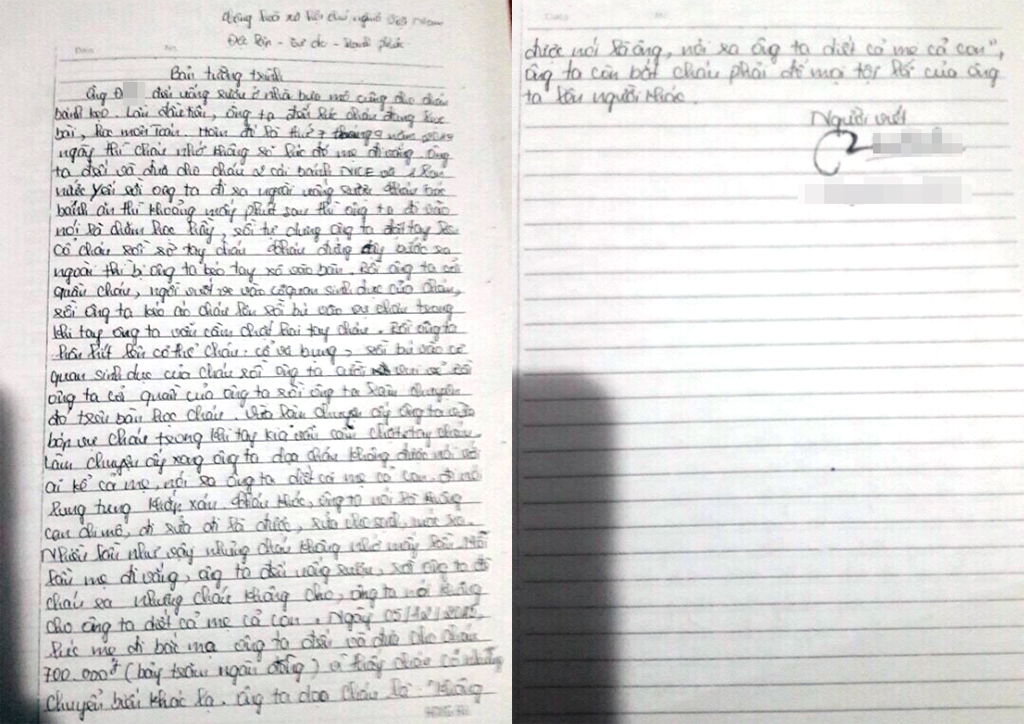 Cộng hoà xã hội chủ nghĩa Việt Nam
Độc lập - Tự do - Hạnh phúc
Bản tường trình
Ông Đ đến uống rượu ở nhà bữa mô cũng cho cháu
bánh kẹo. Lần đầu tiên, ông ta đến lúc cháu đang học
bài, học môn toán. Hôm đó là thứ 7 tháng 9 năm
ngày thì cháu nhớ không rõ lúc đó mẹ đi vắng. Ông
ta đến và đưa cho cháu 2 cái bánh NICE và 1 lon
nước yến rồi ông ta đi ra ngoài uống rượu. Cháu bóc
bánh ăn thì khoảng mấy phút sau thì ông ta đi vào
nói là chăm học hầy, rồi tự dưng ông ta đặt tay lên
cổ cháu rồi sờ tay cháu. Cháu đứng dậy bước ra
ngoài thì bị ông ta kéo tay xô vào bàn. Rồi ông ta cởi
quần cháu, ngồi vuốt ve vào cơ quan sinh dục của cháu,
rồi ông ta kéo áo cháu lên rồi bú vào vú cháu trong
khi tay ông ta vẫn cầm chặt hai tay cháu. Rồi ông ta
hôn hít lên cơ thể cháu: cổ và bụng, rồi bú vào cơ
quan sinh dục của cháu rồi ông ta cười rồi
ông ta cởi quần của ông ta rồi ông ta làm chuyện
đó trên bàn học cháu. Vừa làm chuyện ấy ông ta vừa
bóp vú cháu trong khi tay kia vẫn cầm chặt tay cháu.
Làm chuyện ấy xong ông ta dọa cháu không được nói với
ai kể cả mẹ, nói ra ông ta diết cả mẹ cả con, đi nói
lung tung khắp xóm. Cháu khóc, ông ta nói là không
can chi mô, đi rửa đi là được, rửa cho sạch,
Nhiều lần như vậy nhưng cháu không nhớ mấy lần. Mỗi
lần mẹ đi vắng, ông ta đến uống rượu, rồi ông ta đè
cháu ra nhưng cháu không cho, ông ta nói không
cho ông ta diết cả mẹ cả con. Ngày 05/12/2015,
lúc mẹ đi bắt ma ông ta đến và đưa cho cháu
700.000đ (bảy trăm ngàn đồng) vì thấy cháu có những
chuyển biến khác lạ. Ông ta dọa cháu là: "Không
được nói là ông, nói ra ông ta diết cả mẹ cả con",
ông ta còn bắt cháu phải đổ mọi tội lỗi của ông
ta lên người khác.
Người viết